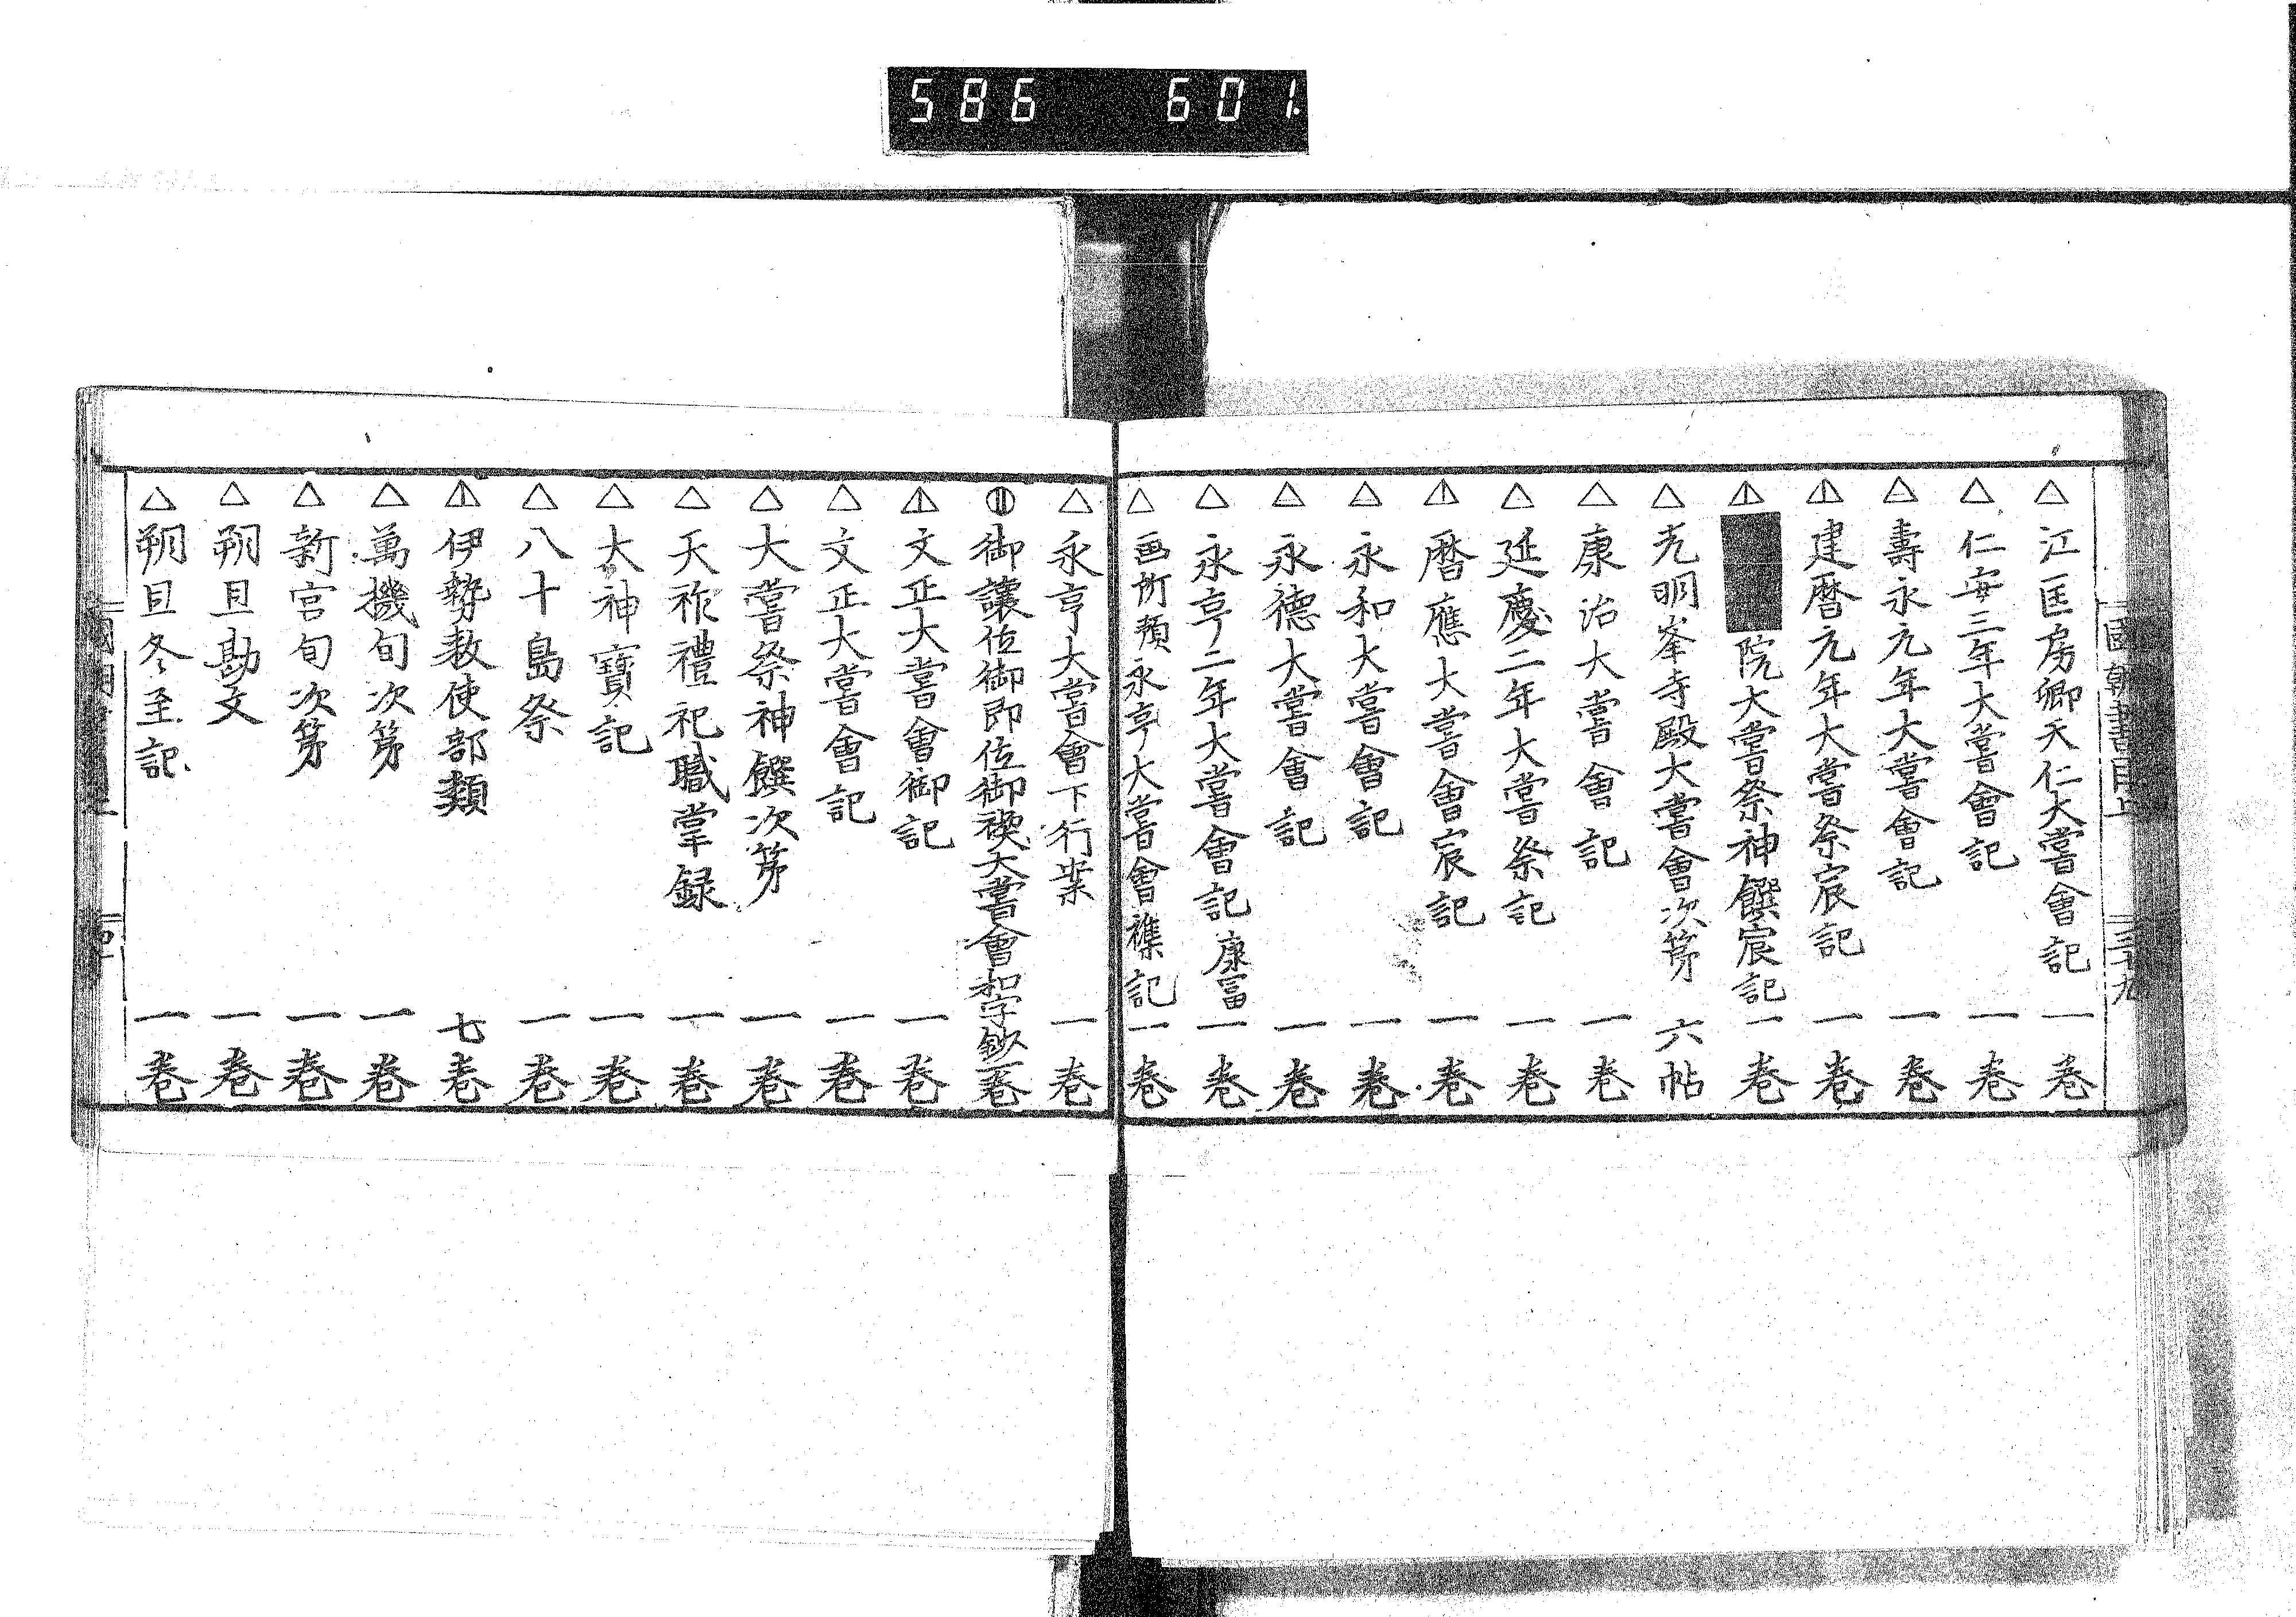 586 601
國朝書目上 三十九
△江匡房卿天仁大嘗會記 一卷
△仁安三年大嘗會記 一卷
△壽永元年大嘗會記 一卷
△建暦元年大嘗祭宸記 一卷
△院大嘗祭神饌宸記 一卷
△光明峯寺殿大嘗會次第 六帖
△康治大嘗會記 一卷
△延慶二年大嘗祭記 一卷
△暦應大嘗會宸記 一卷
△永和大嘗會記 一卷
△永德大嘗會記 一卷
△永亨二年大嘗會記 康冨 一卷
△画所預永亨大嘗會襍記 一卷
△永亨大嘗會下行案 一卷
御讓位御即位御禊大嘗會和字鈔 一卷
△文正大嘗會御記 一卷
△文正大嘗會記 一卷
△大嘗祭神饌次第 一卷
△天祚禮祀職掌録 一卷
△大神寶記 一卷
△八十島祭 一卷
△伊勢敕使部類 七卷
△萬機旬次第 一卷
△新宮旬次第 一卷
△朔旦勘文 一卷
△朔旦冬至記 一卷